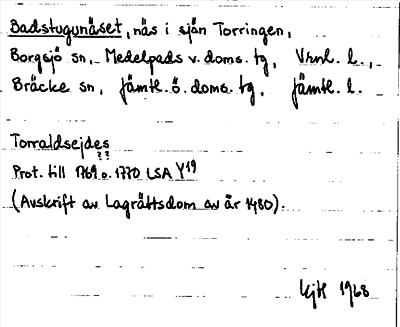 Badstugunäset, näs i sjön Torringen,
Borgsjö sn, Medelpads v. doms. tg, Vrnl. l.,
Bräcke sn, Jämtl. ö. doms. tg, Jämtl. l.
Torraldsejdes
? ?
Prot. till 1769 o. 1770 LSA Y19
(Avskrift av Lagrättsdom av år 1480).
1968